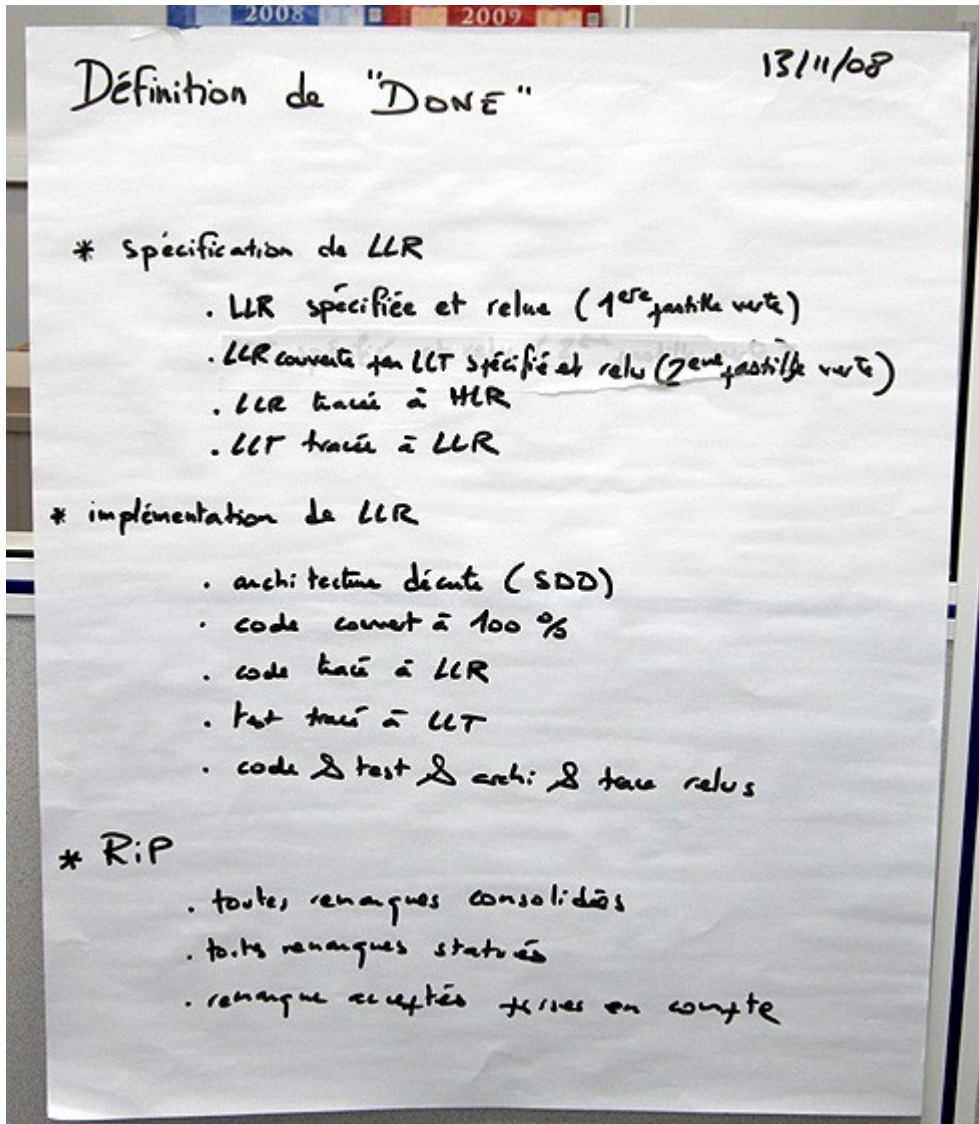 2008 2009
13/11/08
Définition de "DONE"
* Spécification de LLR
. LLR spécifiée et relue (1ere pastille verte)
. LLR couverte par LLT spécifié et relu (2eme pastille verte)
. LLR tracée à HLR
. LLT tracée à LLR
* implémentation de LLR
. architecture décrite (SDD)
. code couvert à 100 %
. code tracé à LLR
. test tracé à LLT
. code & test & archi & trace relus
* RiP
. toutes remarques consolidées
. toutes remarques statués
. remarque acceptés prises en compte